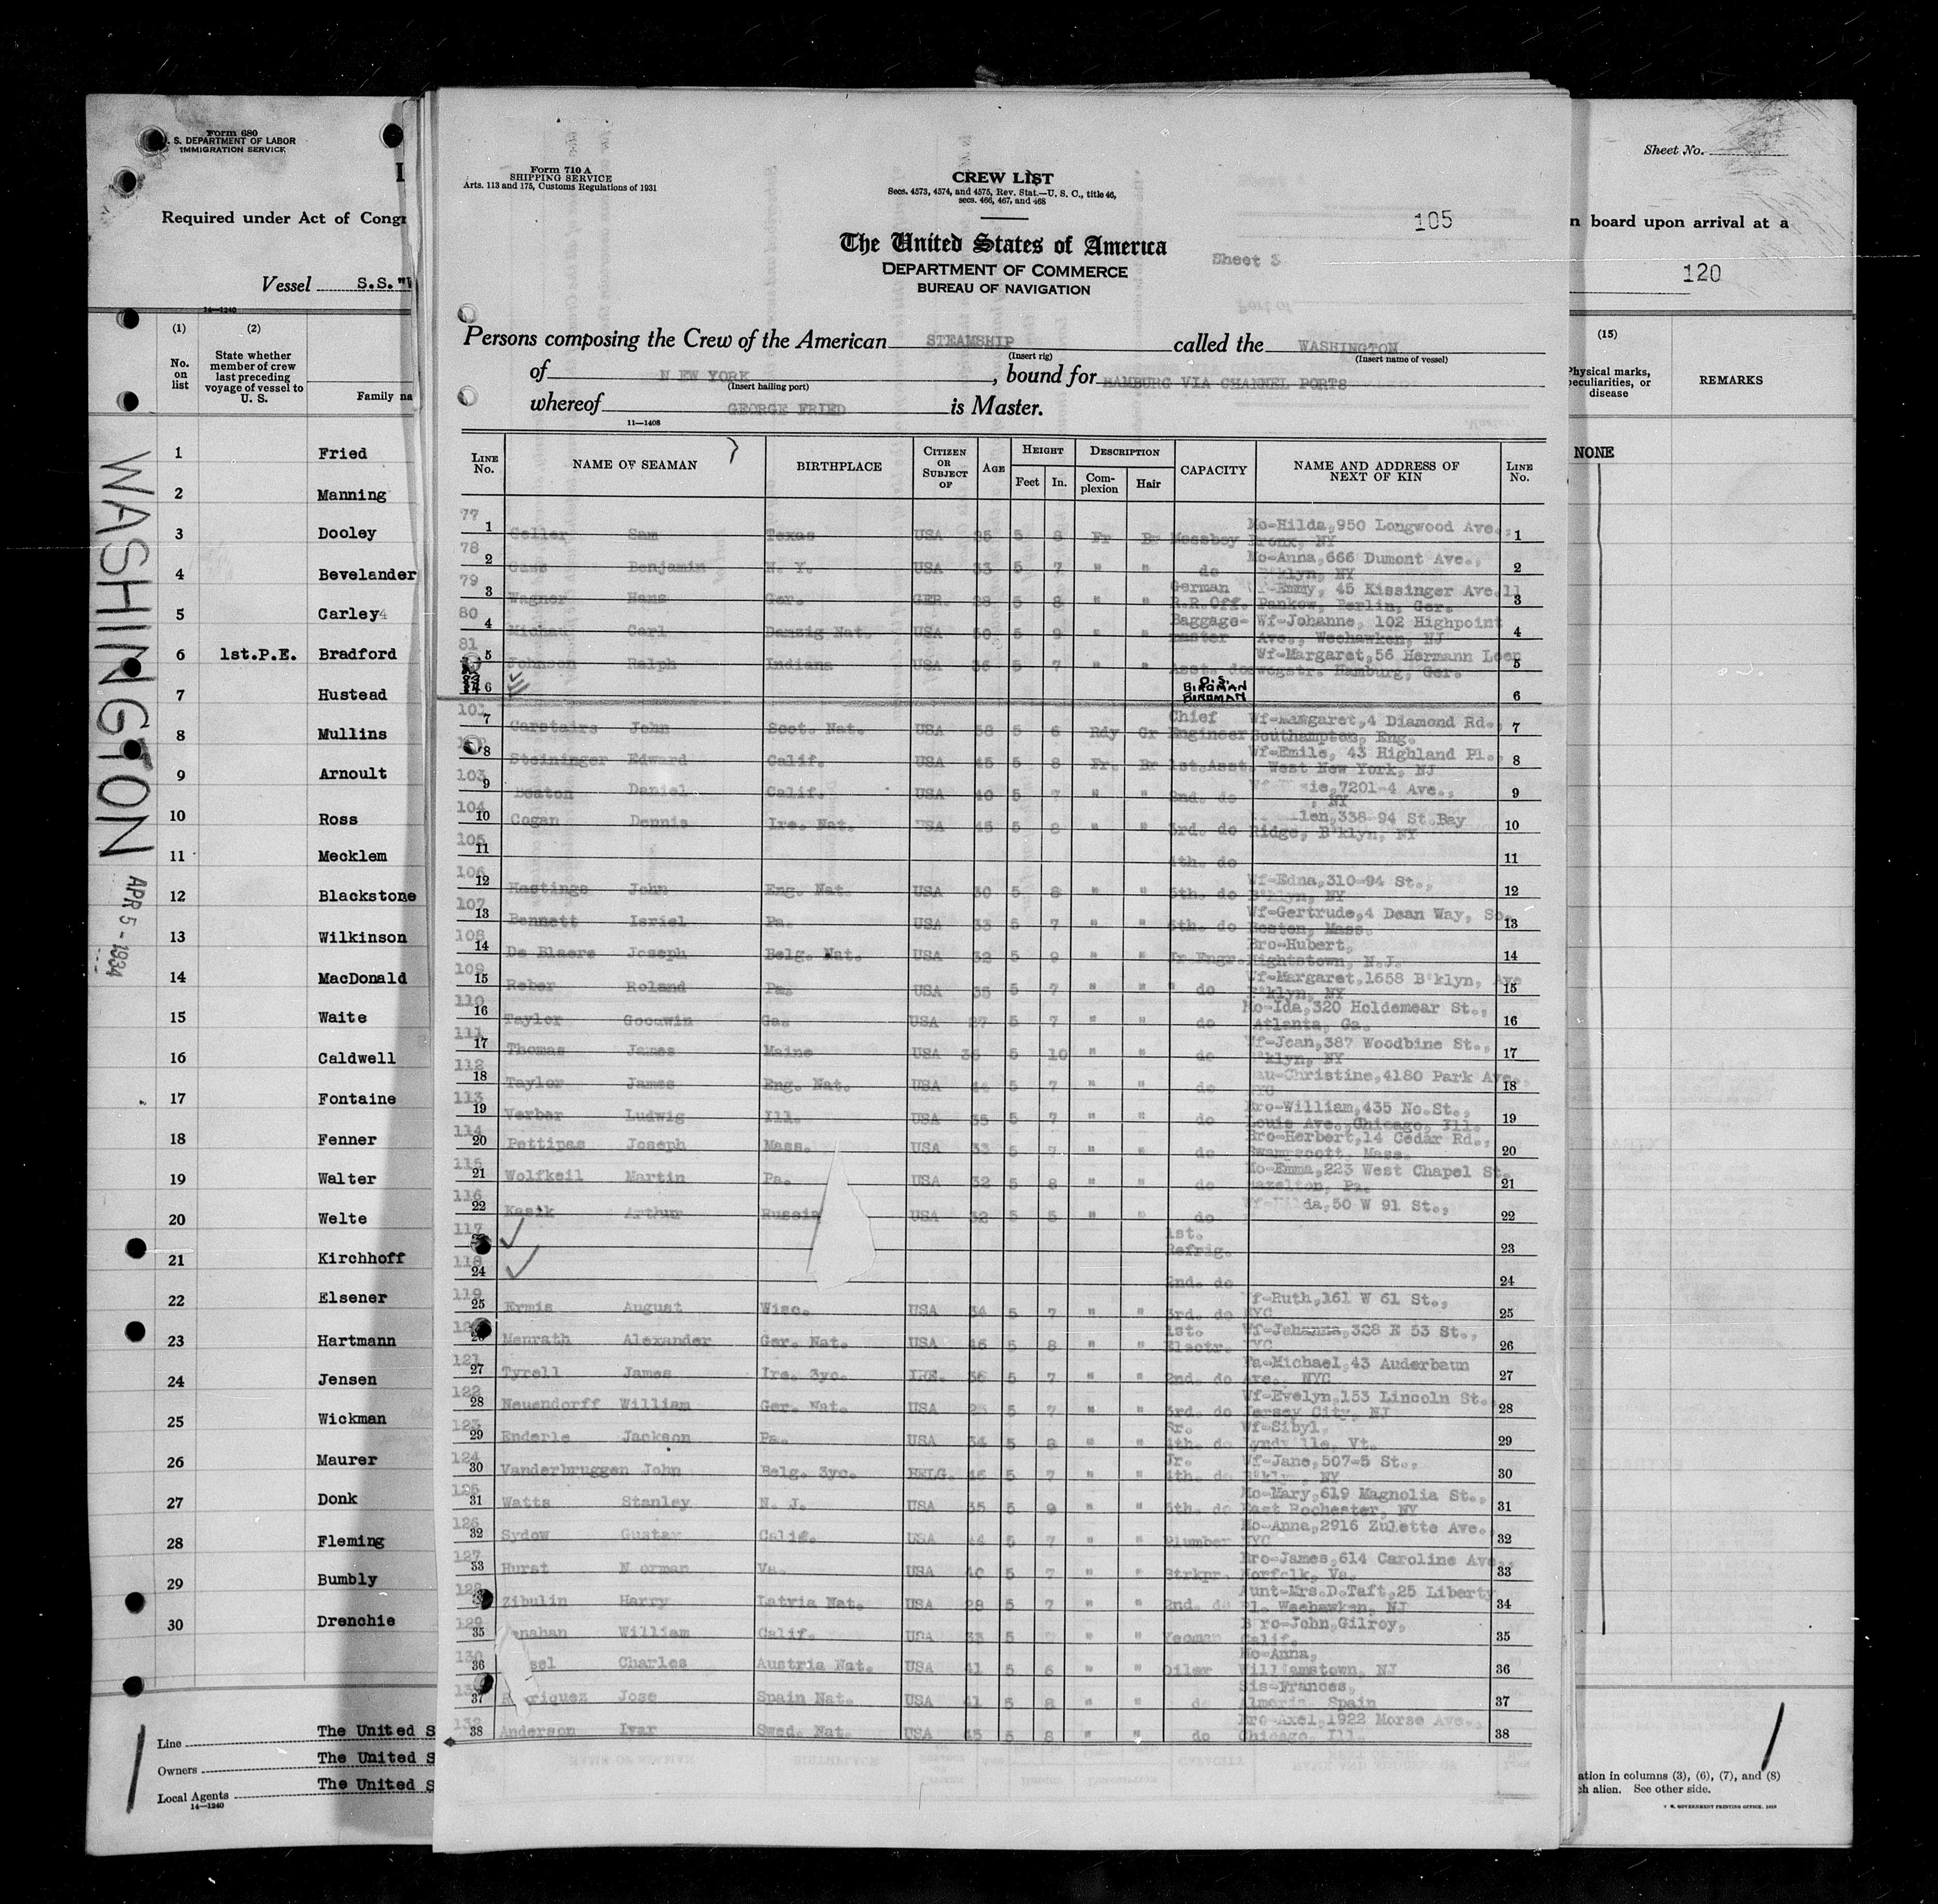 Form 680
S. DEPARTMENT OF LABOR
IMMIGRATION SERVICE
Required under Act of Congr
Vessel S.S. "W
14—1240
(1) (2)
No. on list
State whether member of crew last preceding voyage of vessel to U. S.
Family na
1 Fried
2 Manning
3 Dooley
4 Bevelander
5 Carley
6 1st.P.E. Bradford
7 Hustead
8 Mullins
9 Arnoult
10 Ross
11 Mecklem
12 Blackstone
13 Wilkinson
14 MacDonald
15 Waite
16 Caldwell
17 Fontaine
18 Fenner
19 Walter
20 Welte
21 Kirchhoff
22 Elsener
23 Hartmann
24 Jensen
25 Wickman
26 Maurer
27 Donk
28 Fleming
29 Bumbly
30 Drenchie
Line The United S
Owners The United S
Local Agents The United S
14—1240
WASHINGTON APR 5 - 1934
Form 710 A
SHIPPING SERVICE
Arts. 113 and 175, Customs Regulations of 1931
CREW LIST
Secs. 4573, 4574, and 4575, Rev. Stat.—U. S. C., title 46,
secs. 466, 467, and 468
105
The United States of America
DEPARTMENT OF COMMERCE
BUREAU OF NAVIGATION
Sheet 3
Persons composing the Crew of the American STEAMSHIP called the WASHINGTON
(Insert rig) (Insert name of vessel)
of N EW YORK, bound for HAMBURG VIA CHANNEL PORTS
(Insert hailing port)
whereof GEORGE FRIED is Master.
11—1408
LINE No. NAME OF SEAMAN BIRTHPLACE CITIZEN OR SUBJECT OF AGE HEIGHT Feet In. DESCRIPTION Complexion Hair CAPACITY NAME AND ADDRESS OF NEXT OF KIN LINE No.
77 1 Geller Sam Texas USA 25 5 8 Fr Br Messboy Mo-Hilda,950 Longwood Ave., Bronx, NY 1
78 2 Gass Benjamin N. Y. USA 33 5 7 " " do Mo-Anna,666 Dumont Ave., B'klyn, NY 2
79 3 Wagner Hans Ger. GER. 28 5 8 " " German R.R.Off. Emmy, 45 Kissinger Ave. Pankow, Berlin, Ger. 3
80 4 Carl Danzig Nat. USA 50 5 9 " " Baggage-master Wf-Johanne, 102 Highpoint Ave., Weehawken, NJ 4
81 5 Johnson Ralph Indiana USA 36 5 7 " " Asst. do Wf-Margaret,56 Hermann Hamburg, Ger. 5
6 O.S. BIRDMAN BIRDMAN 6
101 7 Carstairs John Scot. Nat. USA 58 5 6 Rdy Gr Chief Engineer Wf-Margaret,4 Diamond Rd., Southampton, Eng. 7
8 Steininger Edward Calif. USA 45 5 8 Fr. Br 1st.Asst. Wf-Emile, 43 Highland Pl., West New York, NJ 8
103 9 Beaton Daniel Calif. USA 40 5 7 " " 2nd. do 7201-4 Ave., NY 9
104 10 Cogan Dennis Ire. Nat. USA 45 5 8 " " 3rd. do 338-94 St.Bay Ridge, B'klyn, NY 10
105 11 4th. do 11
106 12 Hastings John Eng. Nat. USA 30 5 8 " " 5th. do Wf-Edna,310-94 St., B'klyn, NY 12
107 13 Bennett Isriel Pa. USA 33 5 7 " " 6th. do Wf-Gertrude,4 Dean Way, So. Boston, Mass. 13
108 14 De Blaere Joseph Belg. Nat. USA 32 5 9 " " Jr Engr. Bro-Hubert, Hightstown, N.J. 14
109 15 Reber Roland Pa. USA 35 5 7 " " do Wf-Margaret,1658 B'klyn, Ave B'klyn, NY 15
110 16 Taylor Goodwin Ga. USA 27 5 7 " " do Mo-Ida,320 Holdemear St., Atlanta, Ga. 16
111 17 Thomas James Maine USA 5 10 " " do Wf-Jean,387 Woodbine St., B'klyn, NY 17
112 18 Taylor James Eng. Nat. USA 5 7 " " do Christine,4180 Park Ave., NYC 18
113 19 Verber Ludwig Ill. USA 35 5 7 " " do Bro-William,435 No.St., Louis Ave.,Chicago, Ill. 19
114 20 Pettipas Joseph Mass. USA 33 5 7 " " do Bro-Herbert,14 Cedar Rd., Swampscott, Mass. 20
115 21 Wolfkeil Martin Pa. USA 32 5 8 " " do Mo-Emma,223 West Chapel St. Hazelton, Pa. 21
116 22 Kasik Arthur Russia USA 32 5 5 " " do 50 W 91 St., 22
117 1st. Refrig. 23
118 24 2nd. do 24
119 25 Ermis August Wisc. USA 34 5 7 " " 3rd. do Wf-Ruth,161 W 61 St., NYC 25
26 Menrath Alexander Ger. Nat. USA 46 5 8 " " 1st. Electr. Wf-Johanna,328 E 53 St., NYC 26
121 27 Tyrell James Ire. 3yc. IRE. 36 5 7 " " 2nd. do Fa-Michael,43 Auderbaun Ave., NYC 27
122 28 Neuendorff William Ger. Nat. USA 5 7 " " 3rd. do Wf-Evelyn,153 Lincoln St., Jersey City, NJ 28
123 29 Enderle Jackson Pa. USA 34 5 8 " " Sr. 4th. do Wf-Sibyl, Lyndville, Vt. 29
124 30 Vanderbruggen John Belg. 3yc. BELG. 46 5 7 " " Jr. 4th. do Wf-Jane,507-5 St., B'klyn, NY 30
125 31 Watts Stanley N. J. USA 35 5 9 " " 5th. do Mo-Mary,619 Magnolia St., East Rochester, NY 31
126 32 Sydow Gustav Calif. USA 44 5 7 " " Plumber Mo-Anna,2916 Zulette Ave., NYC 32
127 33 Hurst N orman Va. USA 40 5 7 " " Strkpr. Bro-James,614 Caroline Ave., Norfolk, Va. 33
128 Zibulin Harry Latvia Nat. USA 28 5 7 " " 2nd. do Aunt-Mrs.D.Taft,25 Liberty Pl. Weehawken, NJ 34
129 35 enahan William Calif. USA 33 5 " " Yeoman B ro-John,Gilroy, Calif. 35
130 36 sel Charles Austria Nat. USA 41 5 6 " " Oiler Mo-Anna, Williamstown, NJ 36
37 riquez Jose Spain Nat. USA 41 5 8 " " do Sis-Frances, Almeria, Spain 37
132 38 Anderson Ivar Swed. Nat. USA 45 5 8 " " do Bro-Axel,1922 Morse Ave., Chicago, Ill. 38
Sheet No.
n board upon arrival at a
120
(15)
Physical marks, peculiarities, or disease
REMARKS
NONE
ation in columns (3), (6), (7), and (8)
ch alien. See other side.
GOVERNMENT PRINTING OFFICE